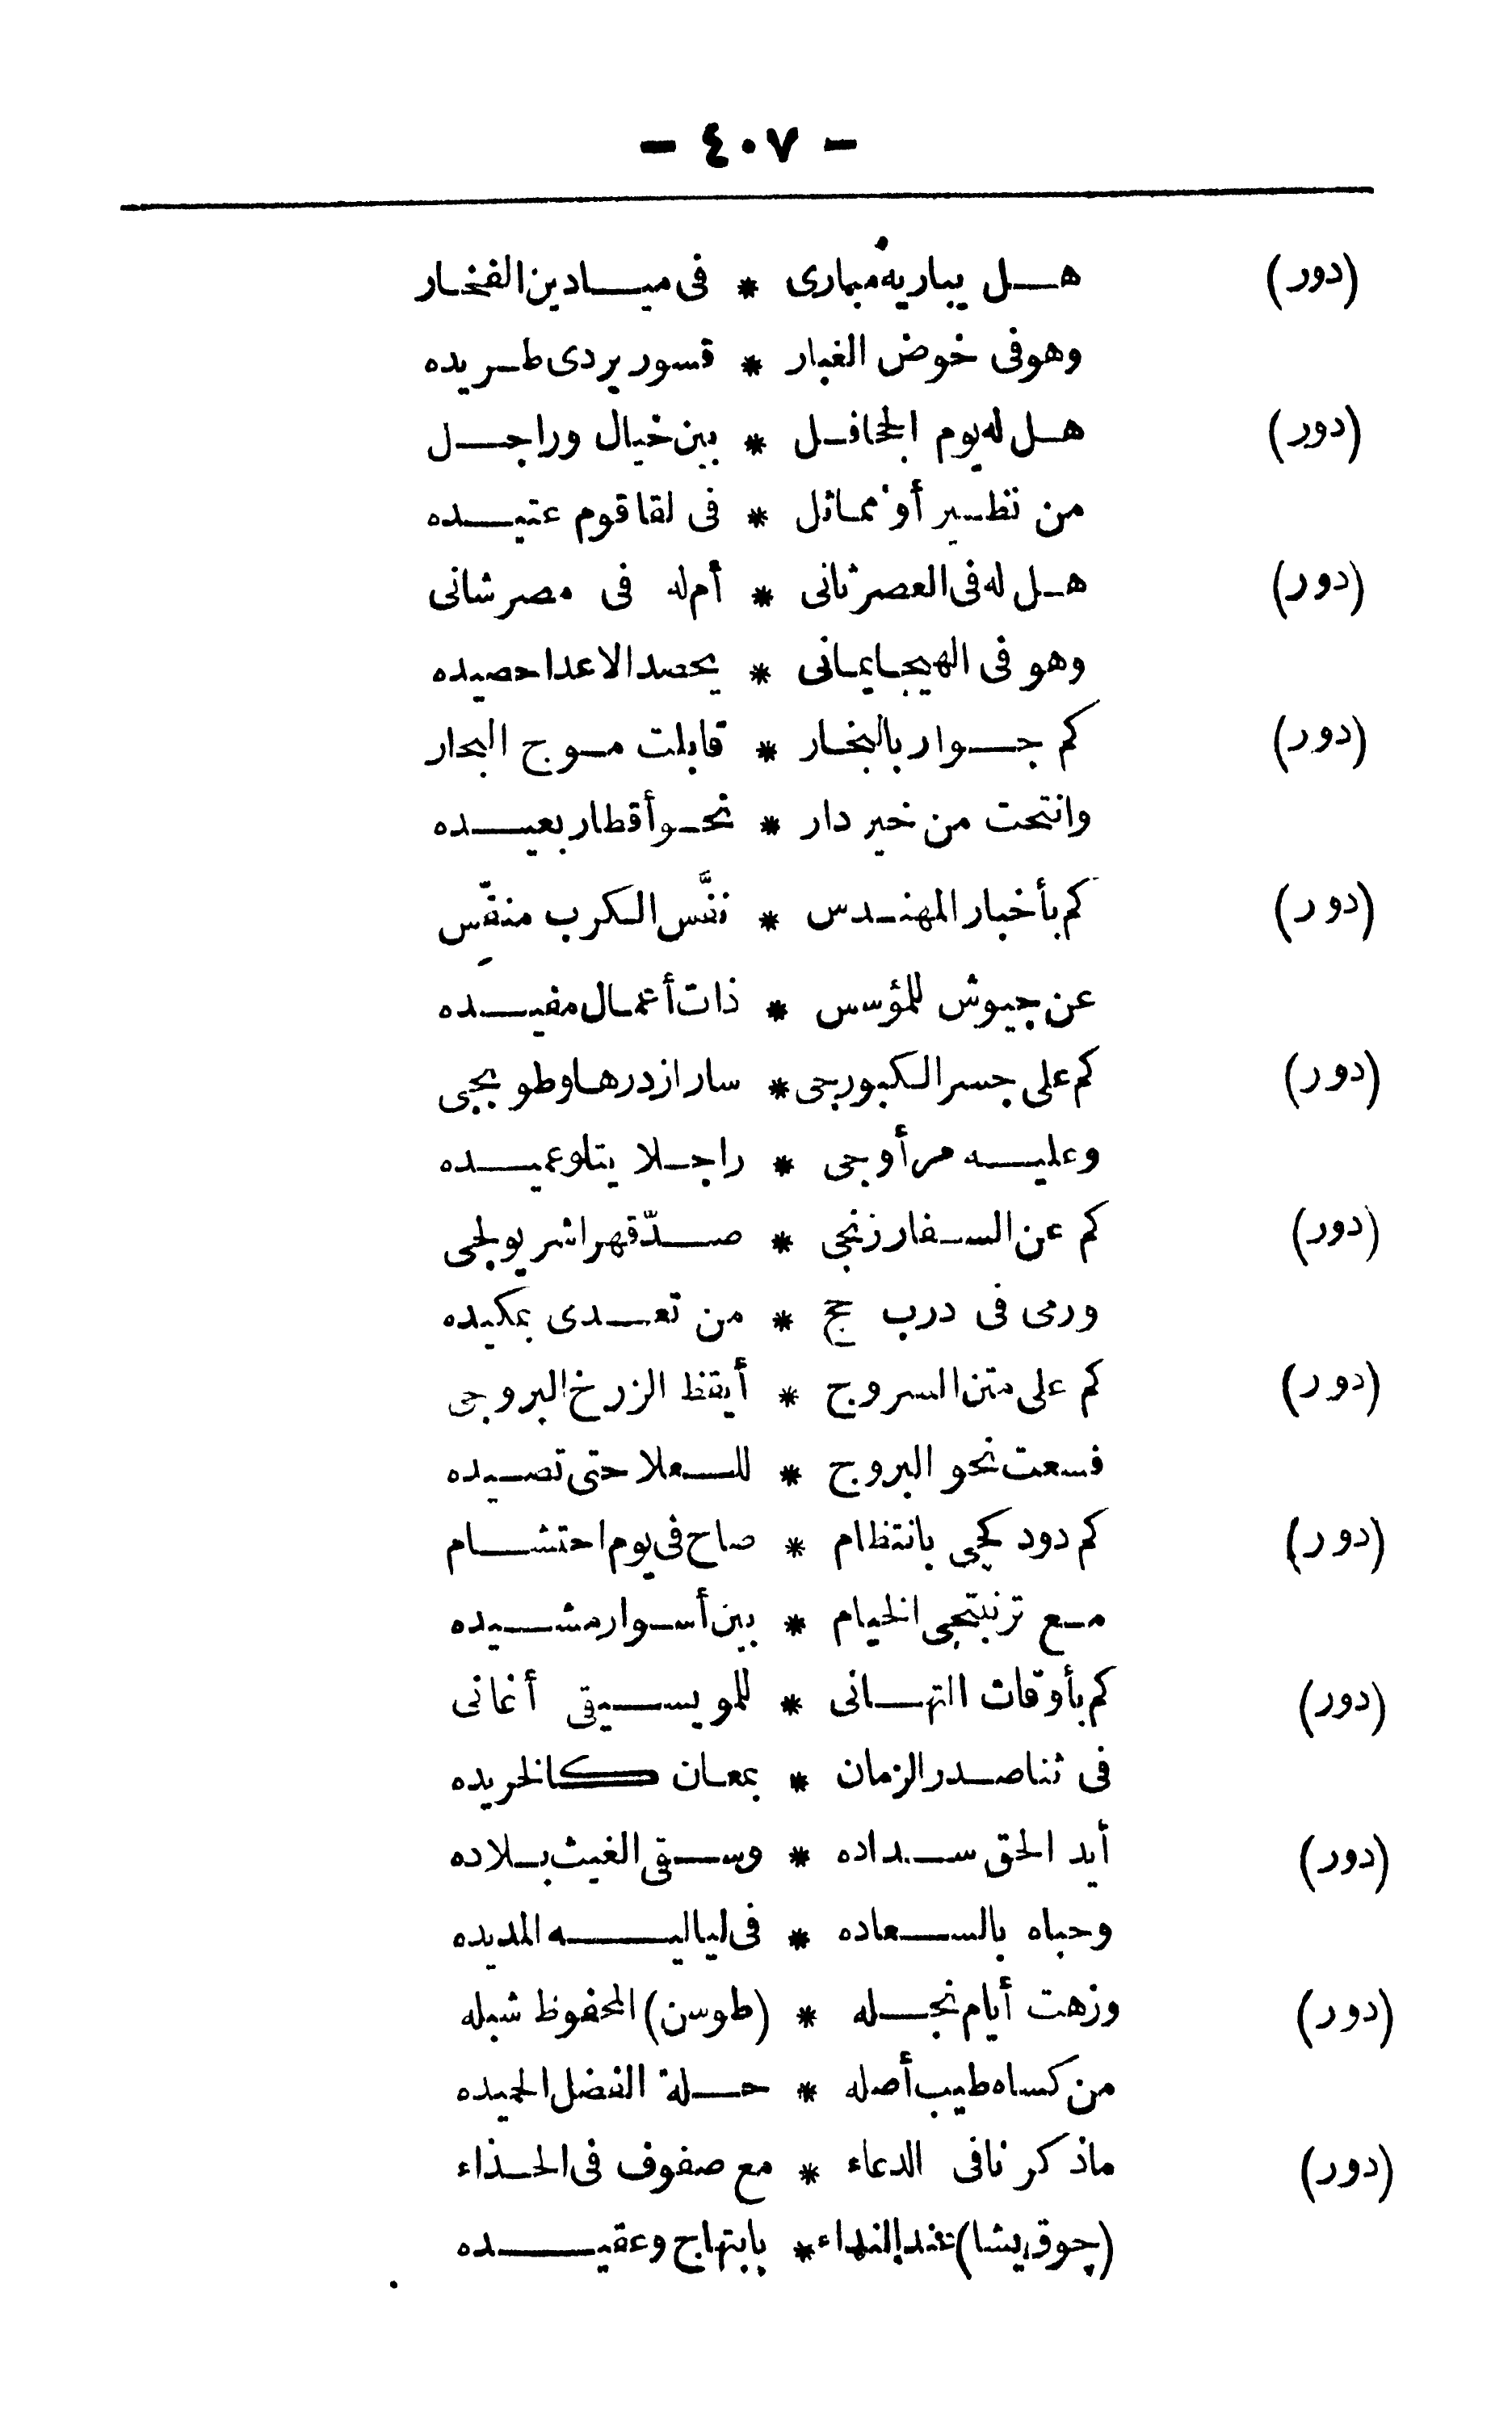 - ٤٠٧ -
(دور) هل يباريه مبارى * فى ميادين الفخار
وهو فى خوض الغبار * قسور يردى طريده
(دور) هل له يوم الجحافل * بين خيال وراجل
من نظير أو مماثل * فى لقا قوم عتيده
(دور) هل له فى العصر ثانى * أم له فى مصر شانى
وهو فى الهيجا يمانى * يحصد الاعدا حصيده
(دور) كم جوار بالبخار * قابلت موج البحار
وانتحت من خير دار * نحو أقطار بعيده
(دور) كم بأخبار المهندس * نفَّس الكرب منفّس
عن جيوش للمؤسس * ذات أعمال مفيده
(دور) كم على جسر الكبورجى * سار ازدرها وطوبجى
وعليه مر أوجى * راجلا يتلو عميده
(دور) كم عن السفار زنجى * صدّ قهرا شريولجى
ورمى فى درب حج * من تعدى بمكيده
(دور) كم على متن السروج * أيقظ الزرخ البروجى
فسعت نحو البروج * للعلا حتى تصيده
(دور) كم دودكجى بانتظام * صاح فى يوم احتشام
مع ترنبتجى الخيام * بين أسوار مشيده
(دور) كم بأوقات التهانى * للمويسيقى أغانى
فى ثنا صدر الزمان * بمعان كالخريده
(دور) أيد الحق سداده * وسقى الغيث بلاده
وحباه بالسعاده * فى لياليه المديده
(دور) وزهت أيام نجله * (طوسن) المحفوظ شبله
من كساه طيب أصله * حلة الفضل الحميده
(دور) ماذكرنا فى الدعاء * مع صفوف فى الحذاء
(چوق يشا) عند النداء * بابتهاج وعقيده